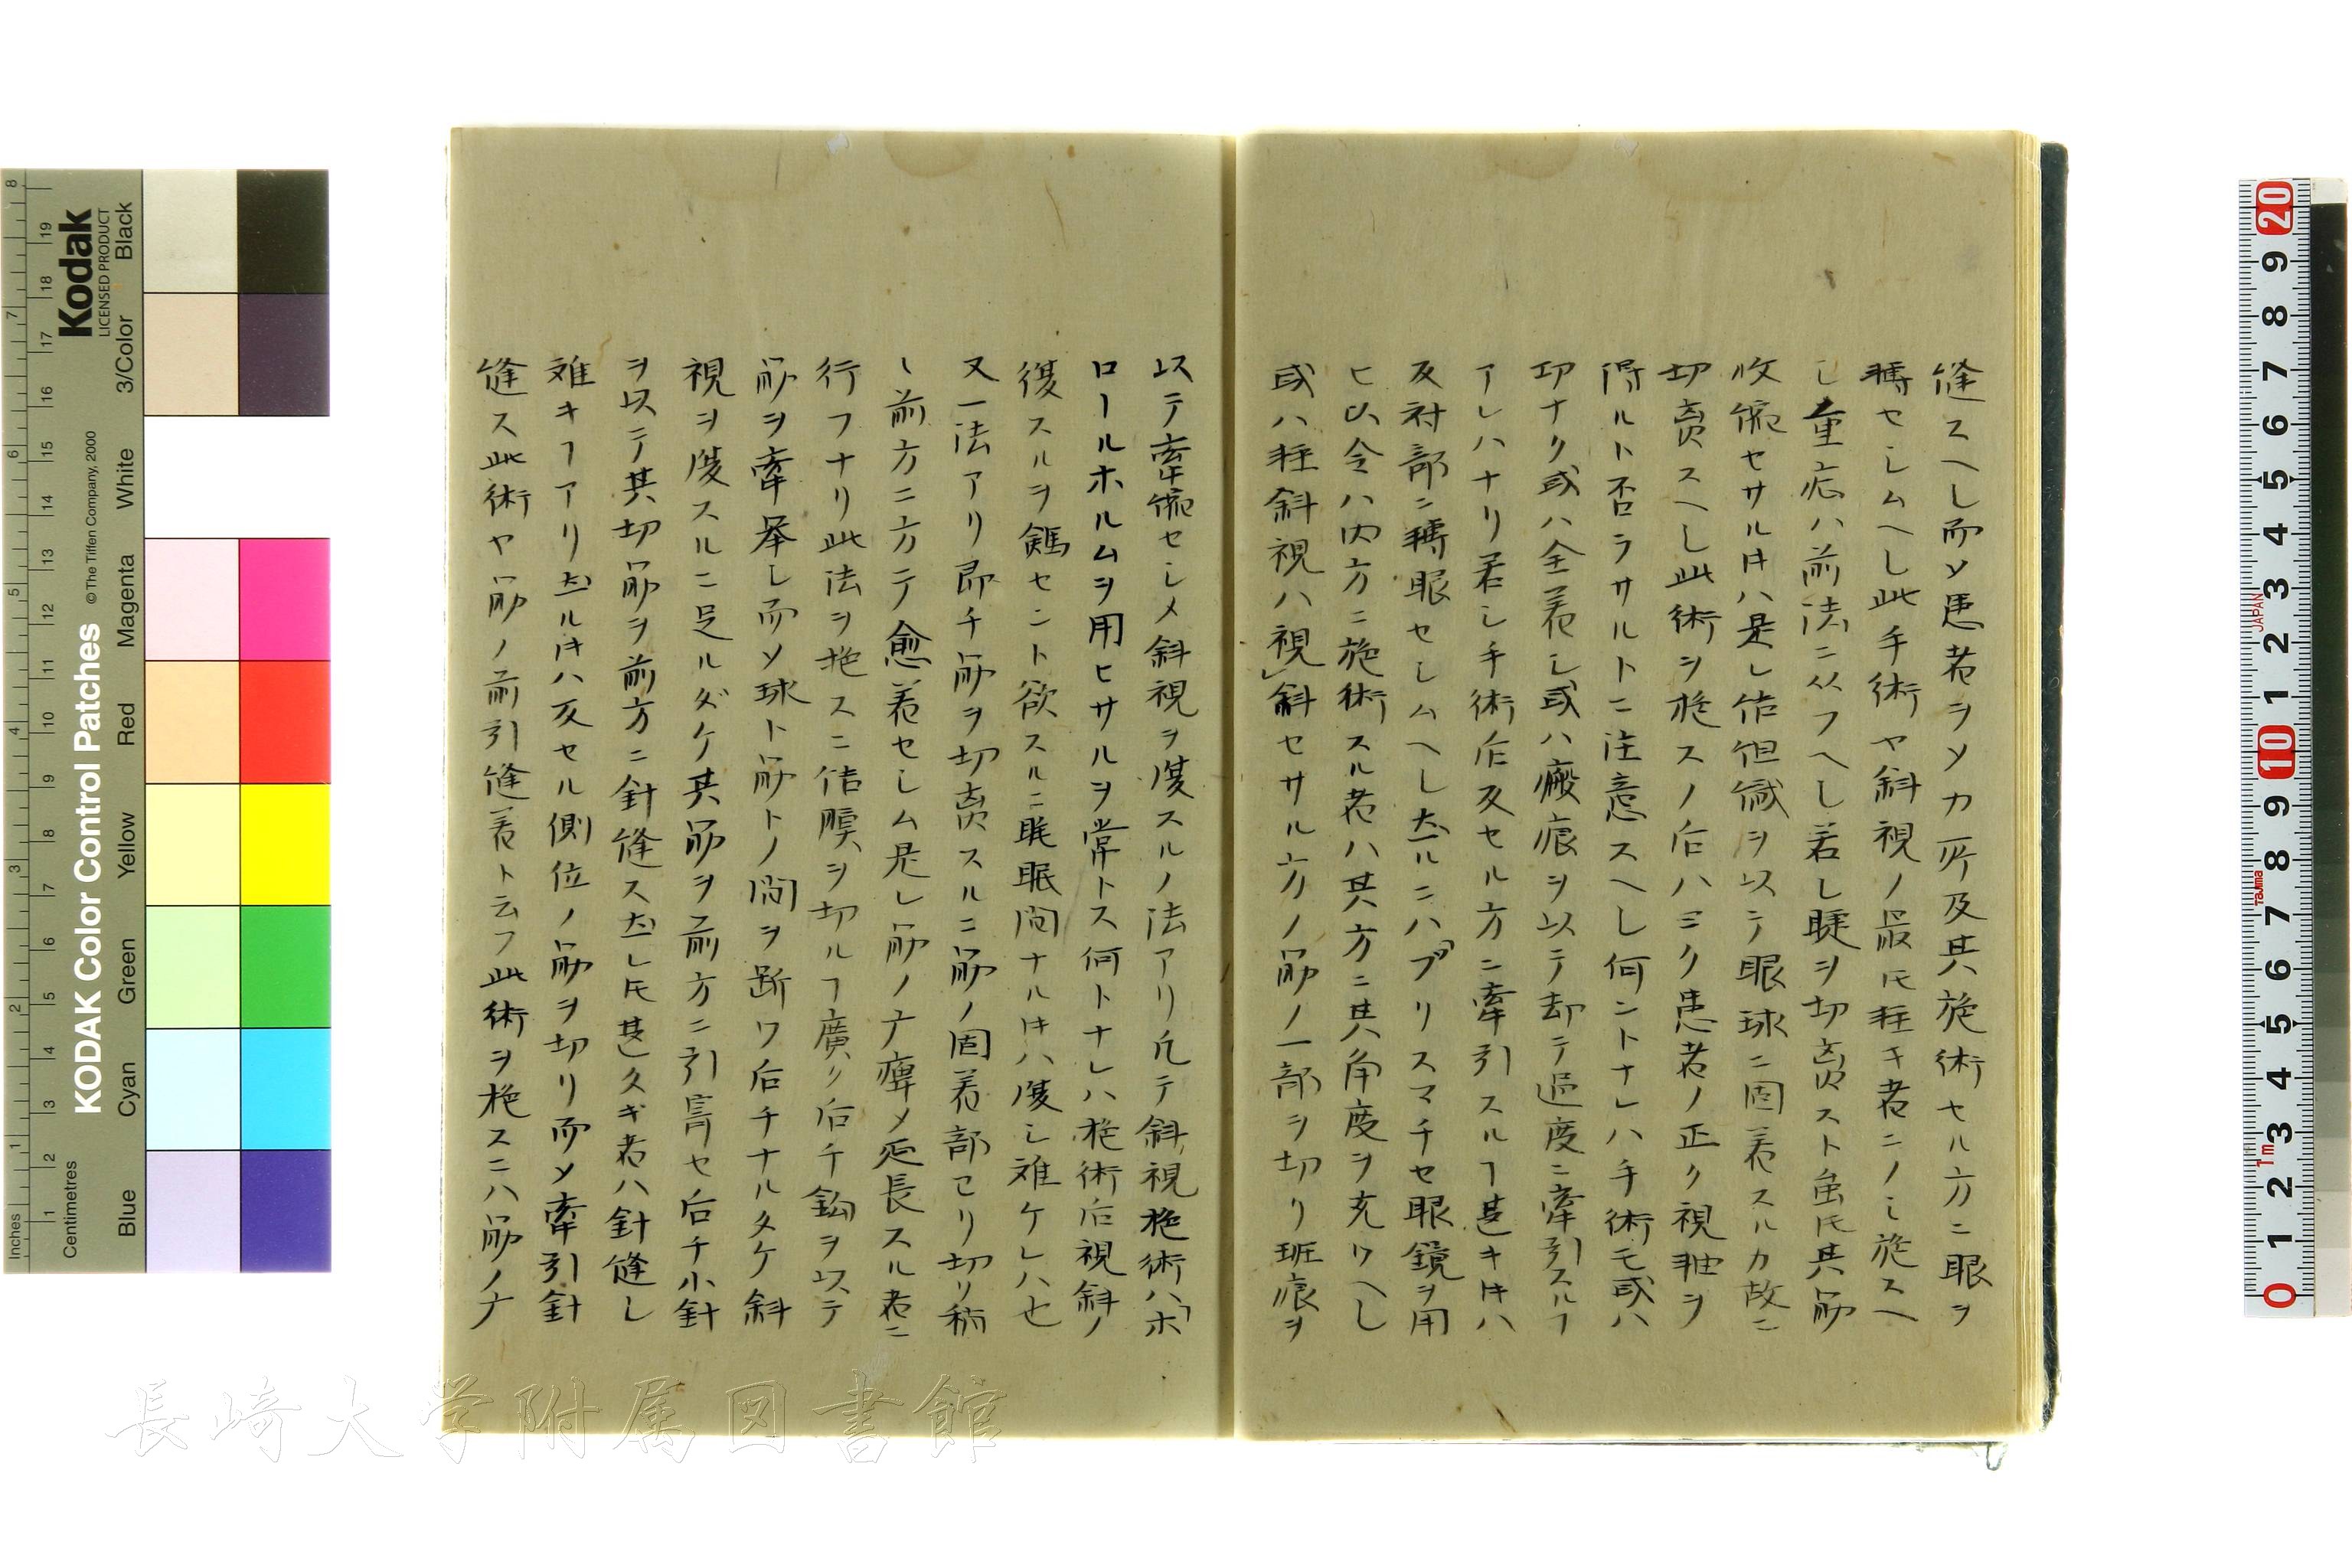 縫スヘし而メ患者ヲメカ所及其施術セル方ニ眼ヲ
轉セしムヘし此手術ヤ斜視ノ最モ軽キ者ニノミ施スヘ
し重症ハ前法ニ从フヘし若し腱ヲ切
收縮セサル片ハ是し結組織ヲ以テ眼球ニ固着スルカ故ニ
切スヘし此術ヲ施スノ后ハミク患者ノ正ク視軸ヲ
得ルト否ラサルトニ注意スヘし何ントナレハ手術モ或ハ
功ナク或ハ全着し或ハ瘢痕ヲ以テ却テ過度ニ牽引スルヿ
アレハナリ若し手術后反セル方ニ牽引スルヿ甚キ片ハ
反対部ニ轉眼セしムヘし然ルニハ「プリスマチセ眼鏡ヲ用
ヒ以令ハ内方ニ施術スル者ハ其方ニ其角度ヲ充ワヘし
或ハ軽斜視ハ視」斜セサル方ノ筋ノ一部ヲ切リ斑痕ヲ
以テ牽縮セしメ斜視ヲ復スルノ法アリ凡テ斜視施術ハ「ホ
ロールホルムヲ用ヒサルヲ常トス何トナレハ施術后視斜ノ
復スルヲ欲スルニ眠間ナル片ハ復し難ケレハ也
又一法アリ即チ筋ヲ切スルニ筋ノ固着部ヨリ切リ稍
し前方ニ方テ愈着セしム是し筋ノナ痺メ延長スル者ニ
行フナリ此法ヲ施スニ結膜ヲ切ルヿ廣ク后チ鈎ヲ以テ
筋ヲ牽挙し而メ球ト筋トノ間ヲ断ワ后チナルタケ斜
視ヲ復スルニ足ルダケ其筋ヲ前方ニ引寄セ后チ小針
ヲ以テ其切筋ヲ前方ニ針縫ス然レ𪜈甚タキ者ハ針縫し
難キヿアリ然ル片ハ反セル側位ノ筋ヲ切リ而メ牽引針
縫ス此術ヤ筋ノ前引縫着ト云フ此術ヲ施スニハ筋ノナ
KODAK Color Control Patches
© The Tiffen Company, 2000
Kodak
LICENSED PRODUCT
Inches
Centimetres
Blue
Cyan
Green
Yellow
Magenta
Red
White
3/Color
Black
長崎大学附属図書館